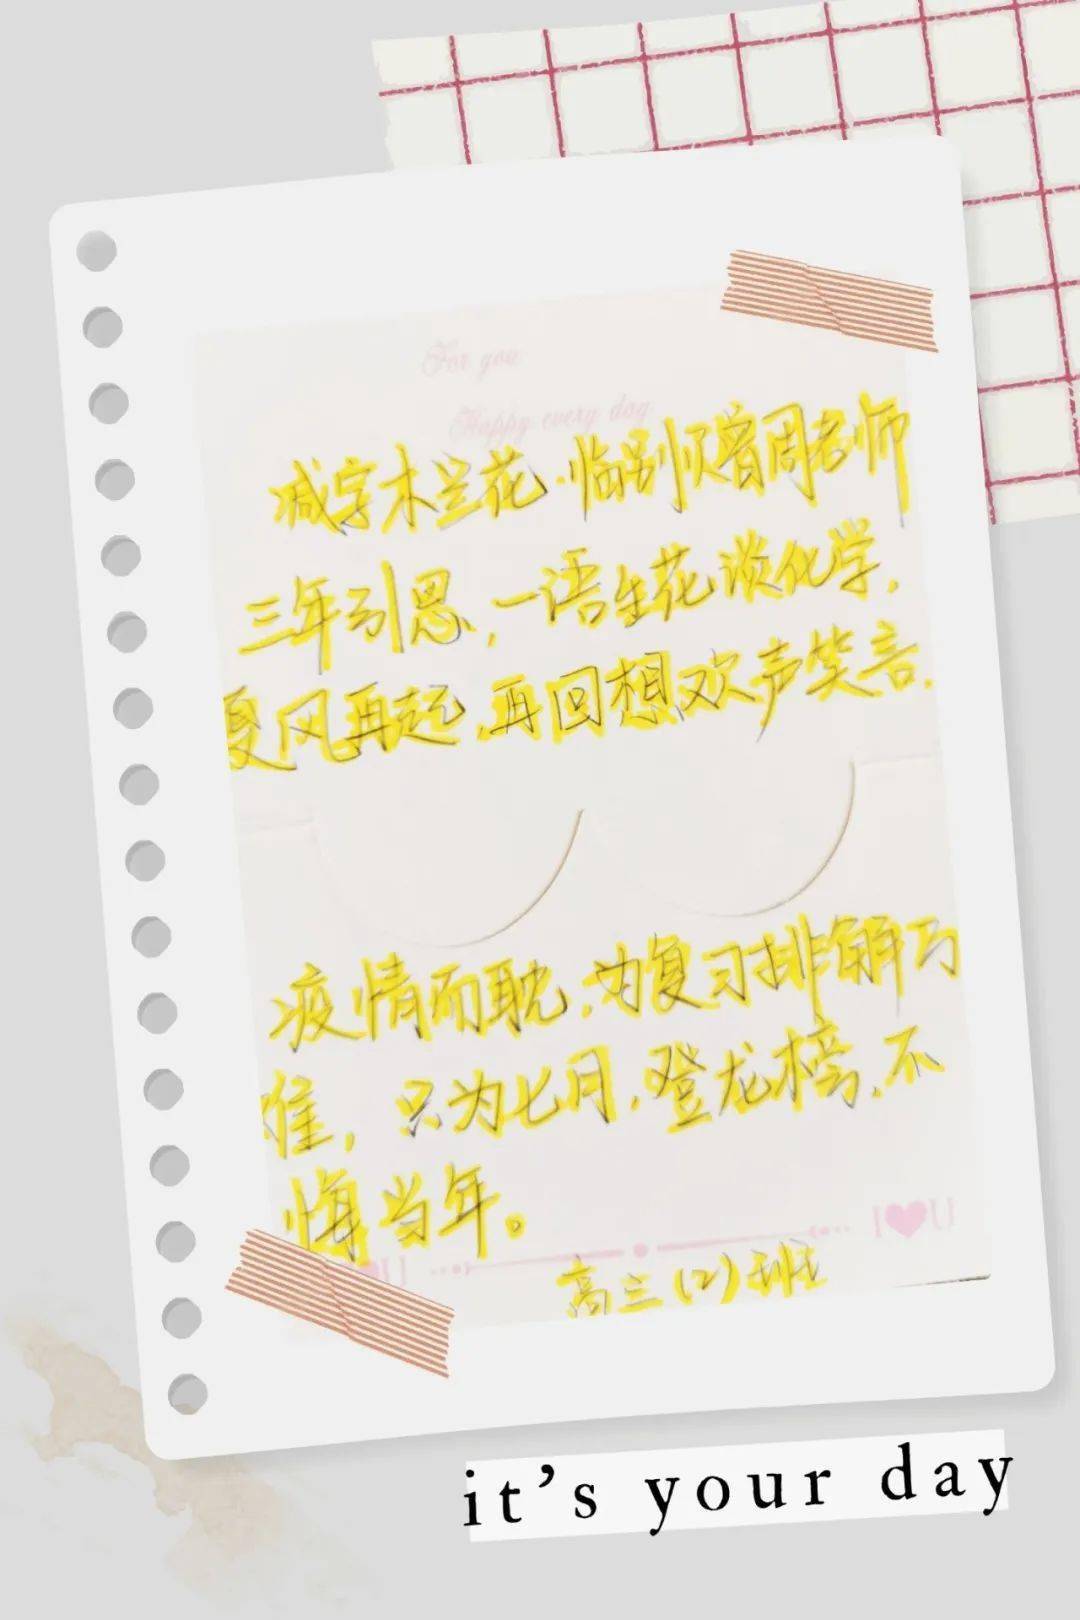 For you
Happy every day
减字木兰花·临别赠周老师
三年引思，一语生花谈化学，
夏风再起，再回想，欢声笑音。
疫情而耽，为复习排解万
难，只为七月，登龙榜，不
悔当年。
I♥U
高三(2)班
it's your day